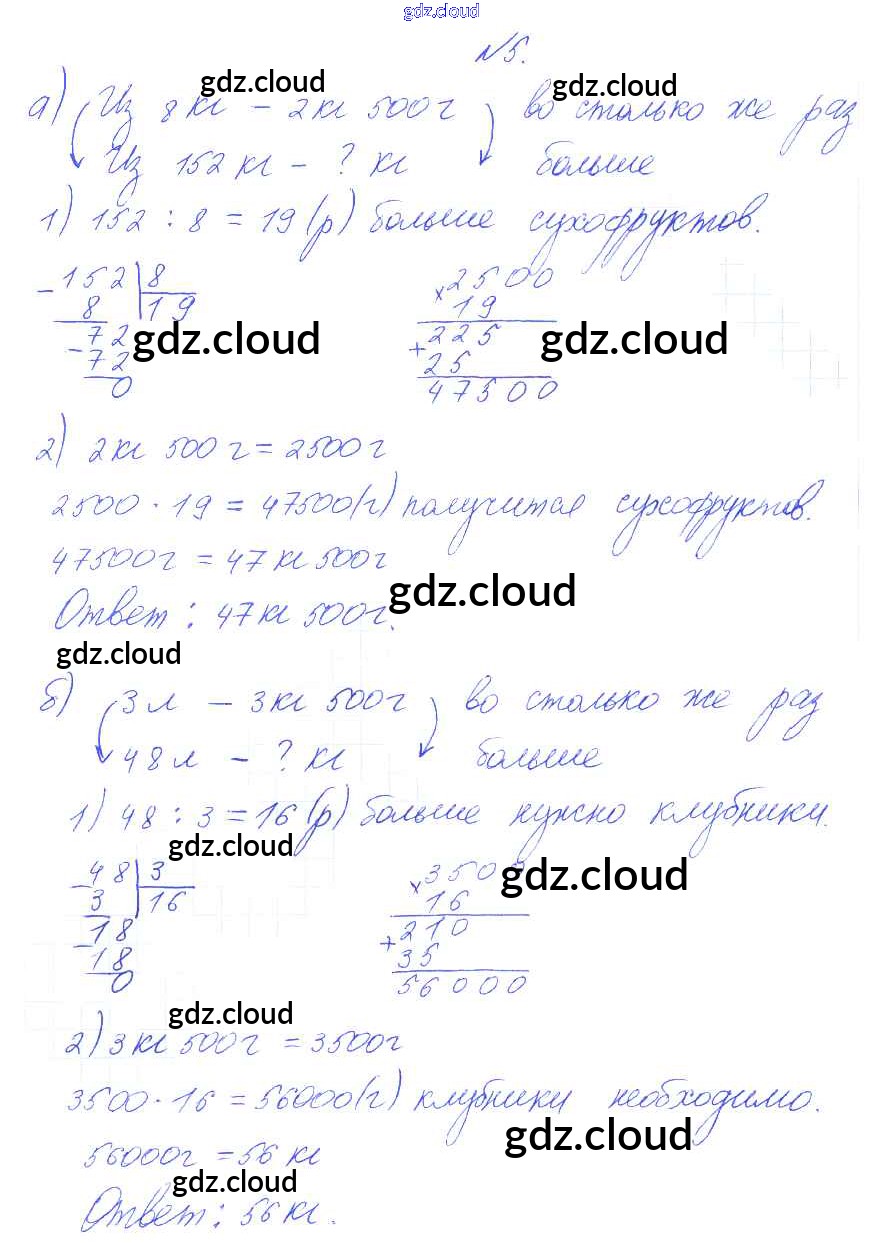 gdz.cloud
№5.
gdz.cloud gdz.cloud
а) Из 8 кг – 2 кг 500 г во столько же раз
Из 152 кг – ? кг больше
1) 152 : 8 = 19 (р) больше сухофруктов.
– 152 | 8 × 2500
8 | 19 19
72 + 225
– 72 25
0 47500
gdz.cloud gdz.cloud
2) 2 кг 500 г = 2500 г
2500 · 19 = 47500 (г) получится сухофруктов.
47500 г = 47 кг 500 г
gdz.cloud
Ответ: 47 кг 500 г.
gdz.cloud
б) 3 л – 3 кг 500 г во столько же раз
48 л – ? кг больше
1) 48 : 3 = 16 (р) больше нужно клубники.
gdz.cloud
– 48 | 3 × 3500
3 | 16 16
– 18 + 210
18 35
0 56000
gdz.cloud
gdz.cloud
2) 3 кг 500 г = 3500 г
3500 · 16 = 56000 (г) клубники необходимо.
gdz.cloud
56000 г = 56 кг
gdz.cloud
Ответ: 56 кг.